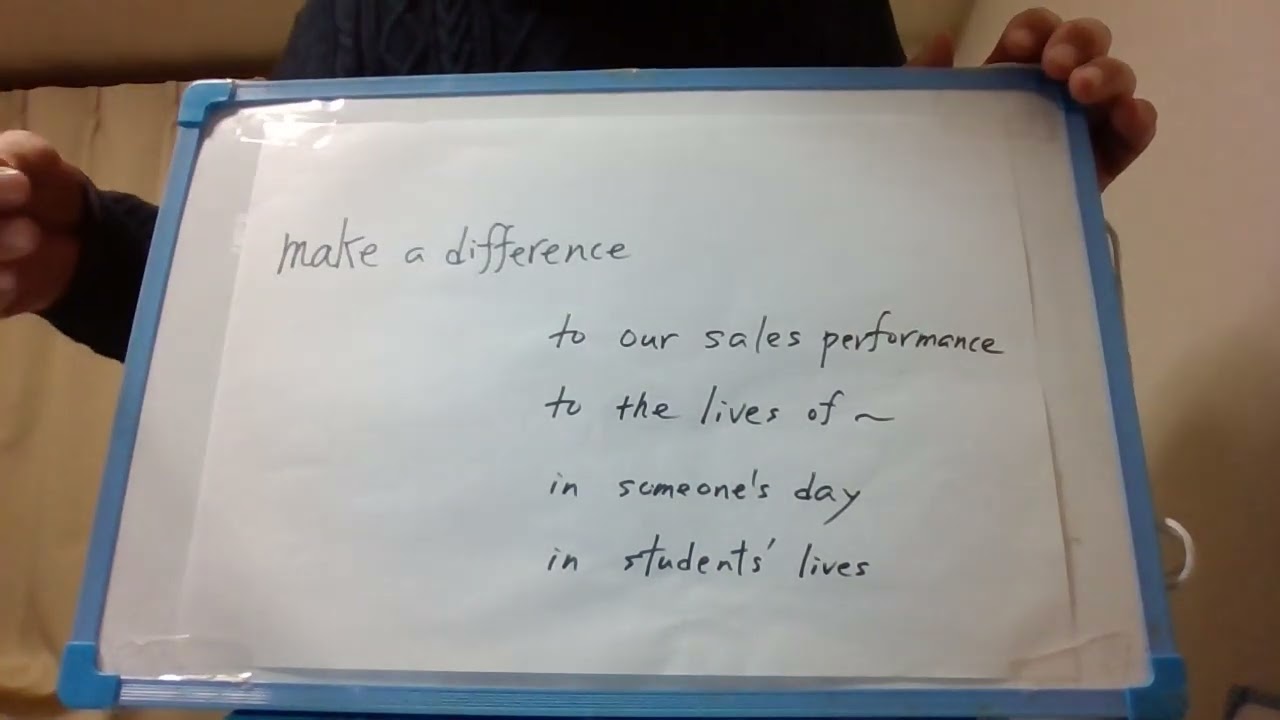 make a difference
to our sales performance
to the lives of ~
in someone's day
in students' lives